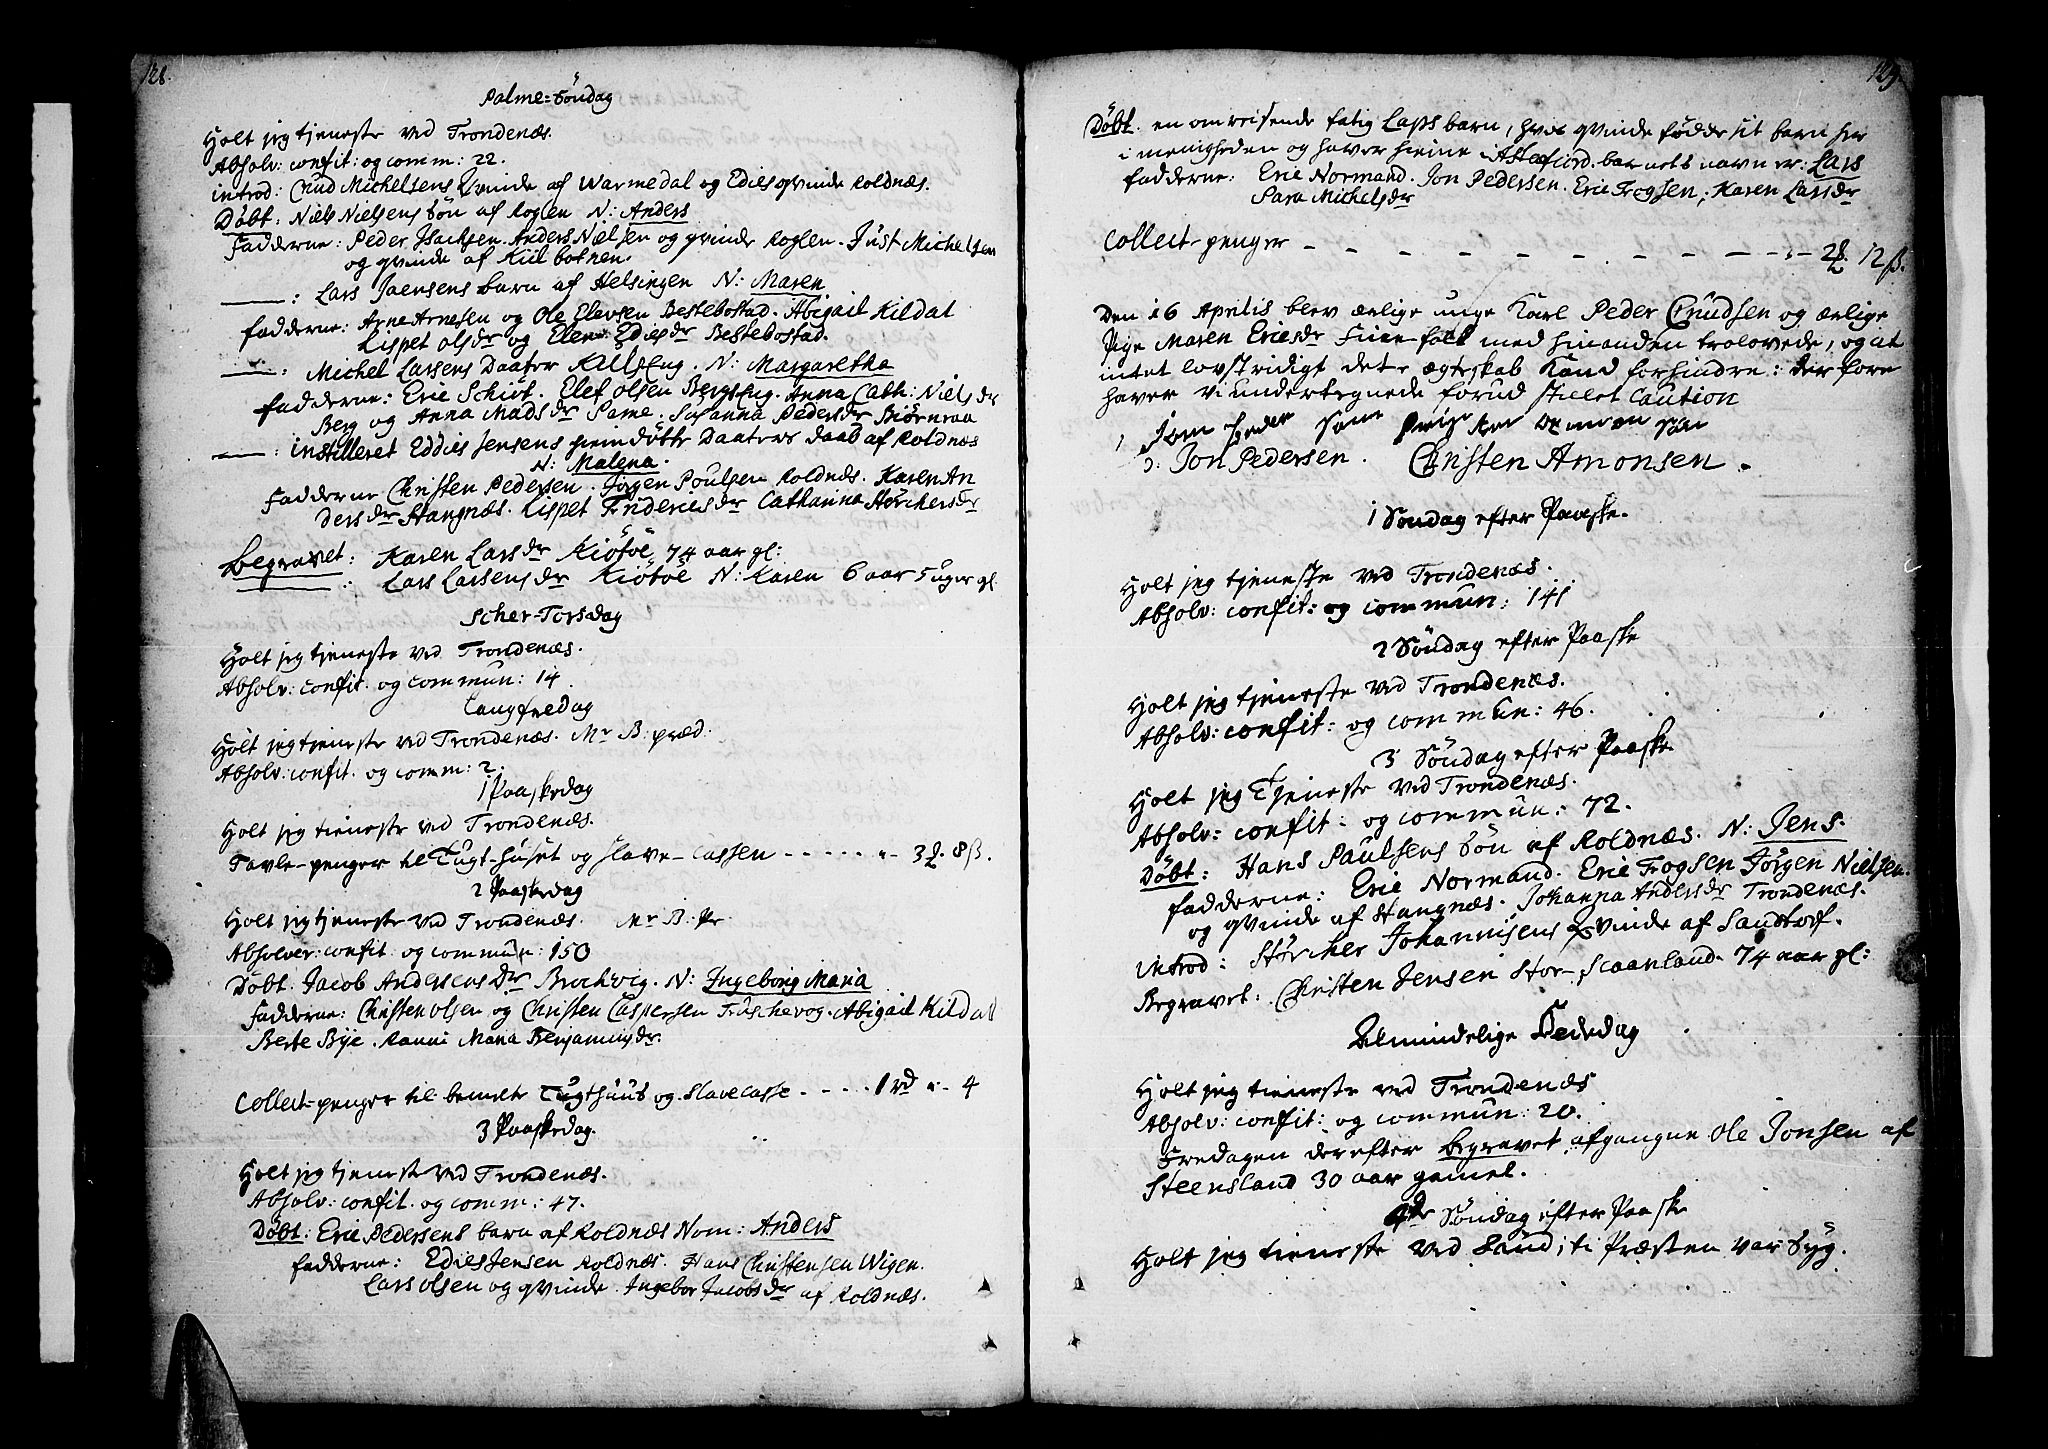 128.
Palme=Søndag
Holt jeg tjeneste ved Trondenæs.
Absolv: confit: og comm: 22.
introd: Cnud Michelsens Qvinde af Warmedal og Edies qvinde Roldnæs.
Døbt: Niels Nielsens Søn af Roglen N: Anders
Fadderne: Peder Isachsen Anders Nielsen og qvinde Roglen. Just Michelsen
og qvinde af Kiilbotnen.
——: Lars Joensens barn af Helsingen N: Maren
fadderne: Arne Arnesen og Ole Elevsen Bestebostad. Abigail Kildal
Lispet Olsdr og Elen Ediesdr Bestebostad.
——: Michel Larsens Daater N: Margaretha
fadderne: Eric Schiøt. Elef Olsen Bergshug. Anna Cath: Nielsdr
Berg og Anna Madsdr Same. Susanna Pedersdr Biørnraa
——: instilleret Eddies Jensens hiemdøbte Daaters daab af Roldnæs
N: Malena.
Fadderne Christen Pedersen. Jørgen Poulsen Roldnæs. Karen An
dersdr Stangnæs. Lispet Fridericsdr Catharina Størchersdr
Begravet: Karen Larsdr Kiøtøe 74 aar gl:
——: Lars Larsens dr Kiøtøe N: Karen 6 aar 5 uger gl
Scher-Torsdag
Holt jeg tjeneste ved Trondenæs.
Absolv: confit: og commun: 14
Langfredag
Holt jeg tjeneste ved Trondenæs. Mr B: præd:
Absolv: confit. og comm: 2.
1 Paaskedag
Holt jeg tieneste ved Trondenæs.
Tavle-penger til Tugt-huset og slave-Cassen - - - - - 3 8ß.
2 Paaskedag
Holt jeg tjeneste ved Trondenæs. Mr B: Pr
Absolver: confit: og commun: 150
Døbt. Jacob Andersens dr Brochvig. N: Ingeborg Maria
Fadderne: Christen Olsen og Christen Caspersen Fuschevog. Abigail Kildal
Berte Bye. Ranni Maria Benjaminsdr
Collect-penger til bemelte Tugthuus og Slavecasse - - - 1 rd - 4
3 Paaskedag.
Holt jeg tjeneste ved Trondenæs.
Absolv: confit. og comm: 47.
Døbt: Eric Pedersens barn af Roldnæs Nom: Anders
fadderne: Edies Jensen Roldnæs. Hans Christensen Wigen.
Lars Olsen og qvinde. Ingebor Jacobsdr af Roldnæs.
129.
Døbt. en omreisende fatig Laps barn, hvis qvinde fødde sit barn her
i menigheden og haver hieme i Astafiord. barnets navn er: Lars
fadderne: Eric Normand. Jon Pedersen. Eric Frogsen, Karen Larsdr
Sara Michelsdr
Collect-penger - - - - - - - - - 2 12ß.
Den 16 Aprilis blev ærlige unge Karl Peder Cnudsen og ærlige
Pige Maren Ericsdr med hinanden trolovede, og at
intet lovstridigt dette ægteskab kand forhindre: derfore
haver vi undertegnede forud stillet Caution
Jon Pedersen. Christen Amonsen.
1 Søndag efter Paaske.
Holt jeg tjeneste ved Trondenæs.
Absolv: confit: og commun: 141
2 Søndag efter Paaske
Holt jeg tjeneste ved Trondenæs.
Absolv: confit: og commun: 46.
3 Søndag efter Paaske
Holt jeg Tjeneste ved Trondenæs.
Absolv: confit: og commun: 72.
Døbt: Hans Paulsens Søn af Roldnæs. N: Jens.
fadderne: Eric Normand. Eric Frogsen Jørgen Nielsen.
og qvinde af Stangnæs. Johanna Andersdr Trondenæs.
introd: Størcher Johannisens Qvinde af Sandtorf.
Begravet: Christen Jensen Stor-Scaanland. 74 aar gl:
Almindelige Bededag
Holt jeg tieneste ved Trondenæs
Absolv: confit: og commun: 20.
Fredagen derefter begravet afgangne Ole Jonsen af
Steensland 30 aar gamel.
4de Søndag efter Paaske
Holt jeg tieneste ved Sand, ti Præsten var syg.